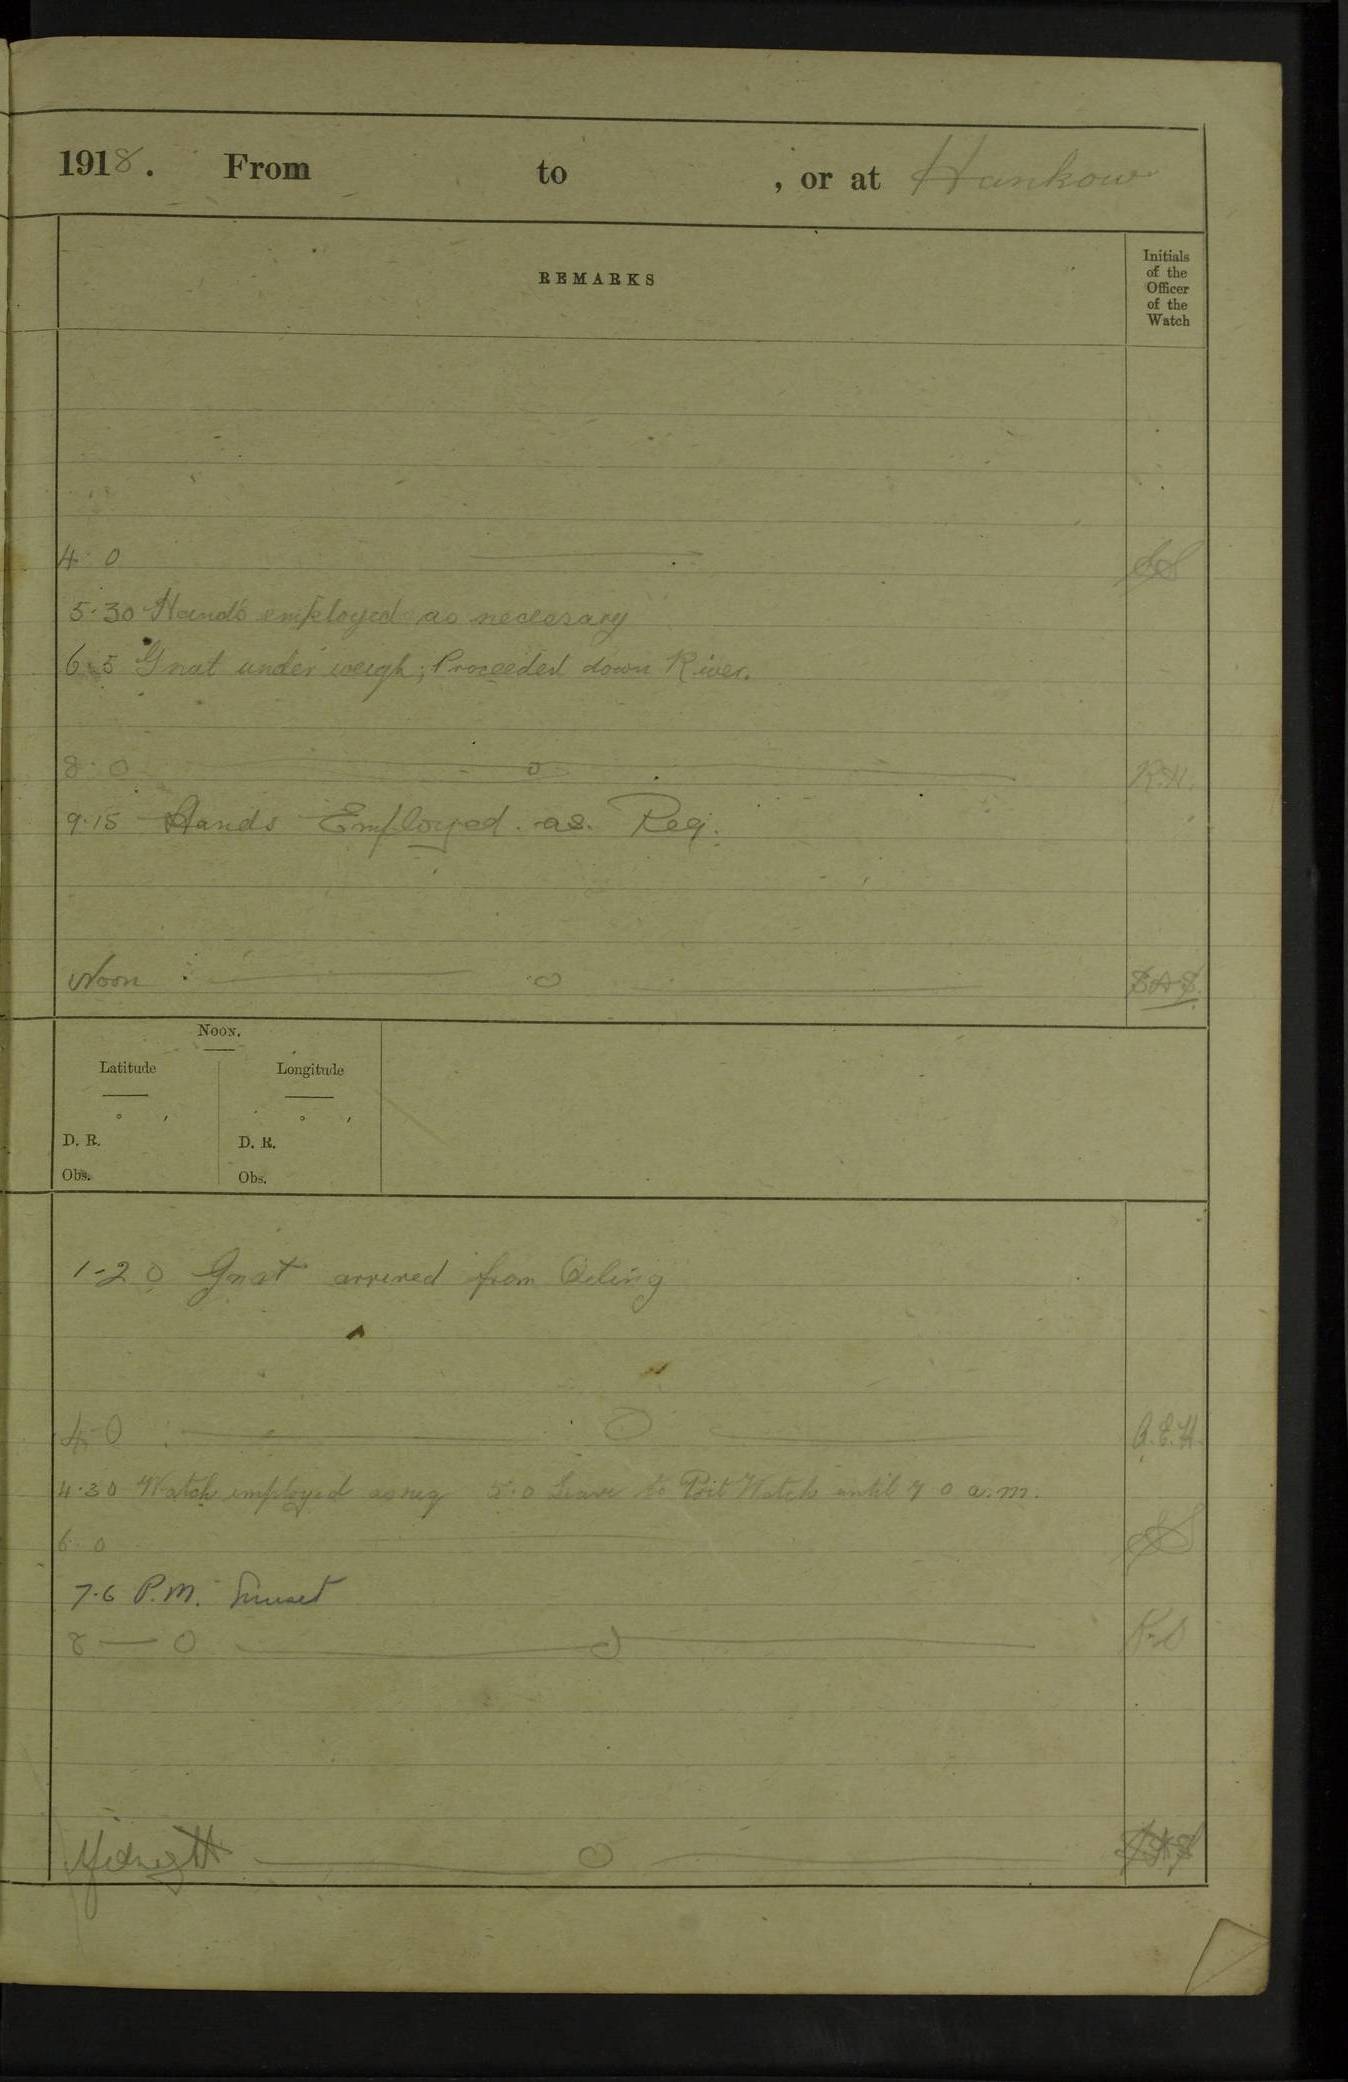 1918. From to , or at Hankow
REMARKS
Initials
of the
Officer
of the
Watch
4.0
5.30 Hands employed as necessary
6.5 Gnat under weigh; Proceeded down River.
8.0 R.H.
9.15 Hands Employed. as. Req.
Noon
Noon.
Latitude Longitude
° ′ ° ′
D. R. D. R.
Obs. Obs.
1-20 Gnat arrived from
4.0 A.E.H.
4.30 Watch employed as req 5.0 Leave to Port Watch until 7 0 a.m.
6.0
7.6 P.M. Sunset
8 — 0
Midnight